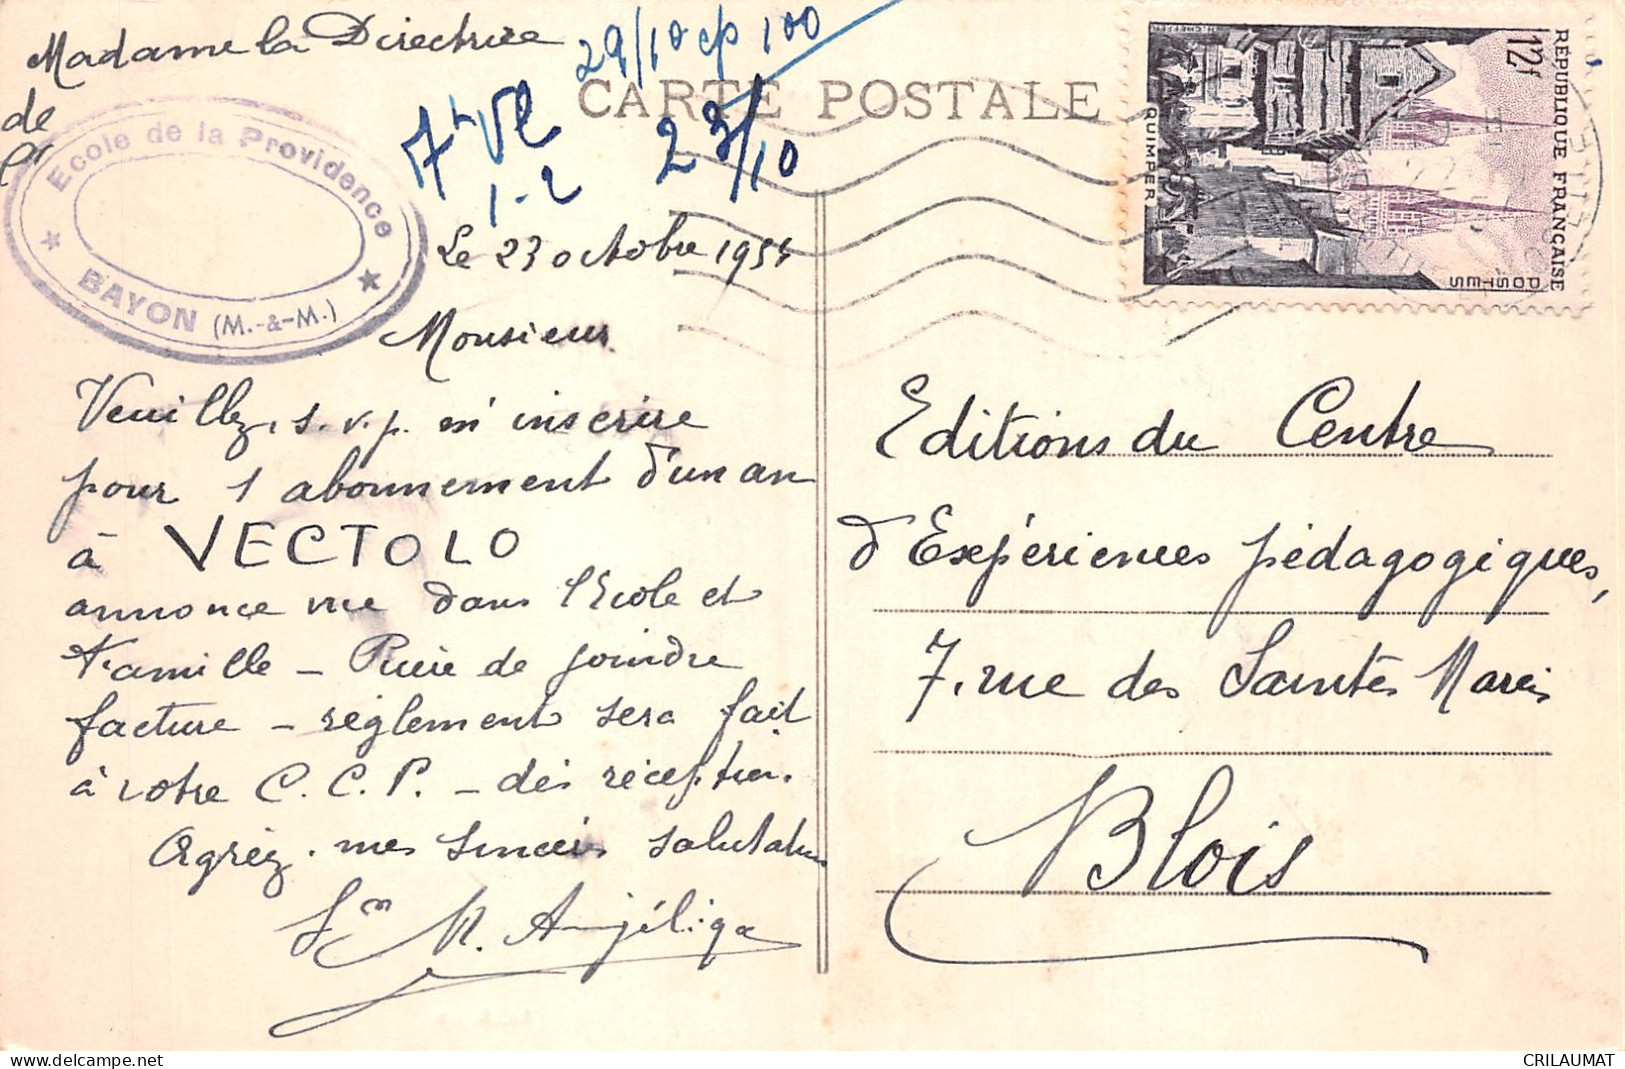 Madame la Directrice
de
l'
Ecole de la Providence
BAYON (M.-&-M.)
29/10 cp 100
7h Vl
1-2
23/10
CARTE POSTALE
RÉPUBLIQUE FRANÇAISE
12f
POSTES
QUIMPER
Le 23 octobre 1954
Monsieur
Veuillez, s.v.p. m'inscrire
pour 1 abonnement d'un an
à VECTOLO
annonce vue dans l'Ecole et
Famille – Prière de joindre
facture – règlement sera fait
à votre C.C.P. – dès réception.
Agréez mes sincères salutations
Sr M. Angéliqa
Editions du Centre
d'Expériences pédagogiques,
7, rue des Saintes Maries
Blois
CRILAUMAT